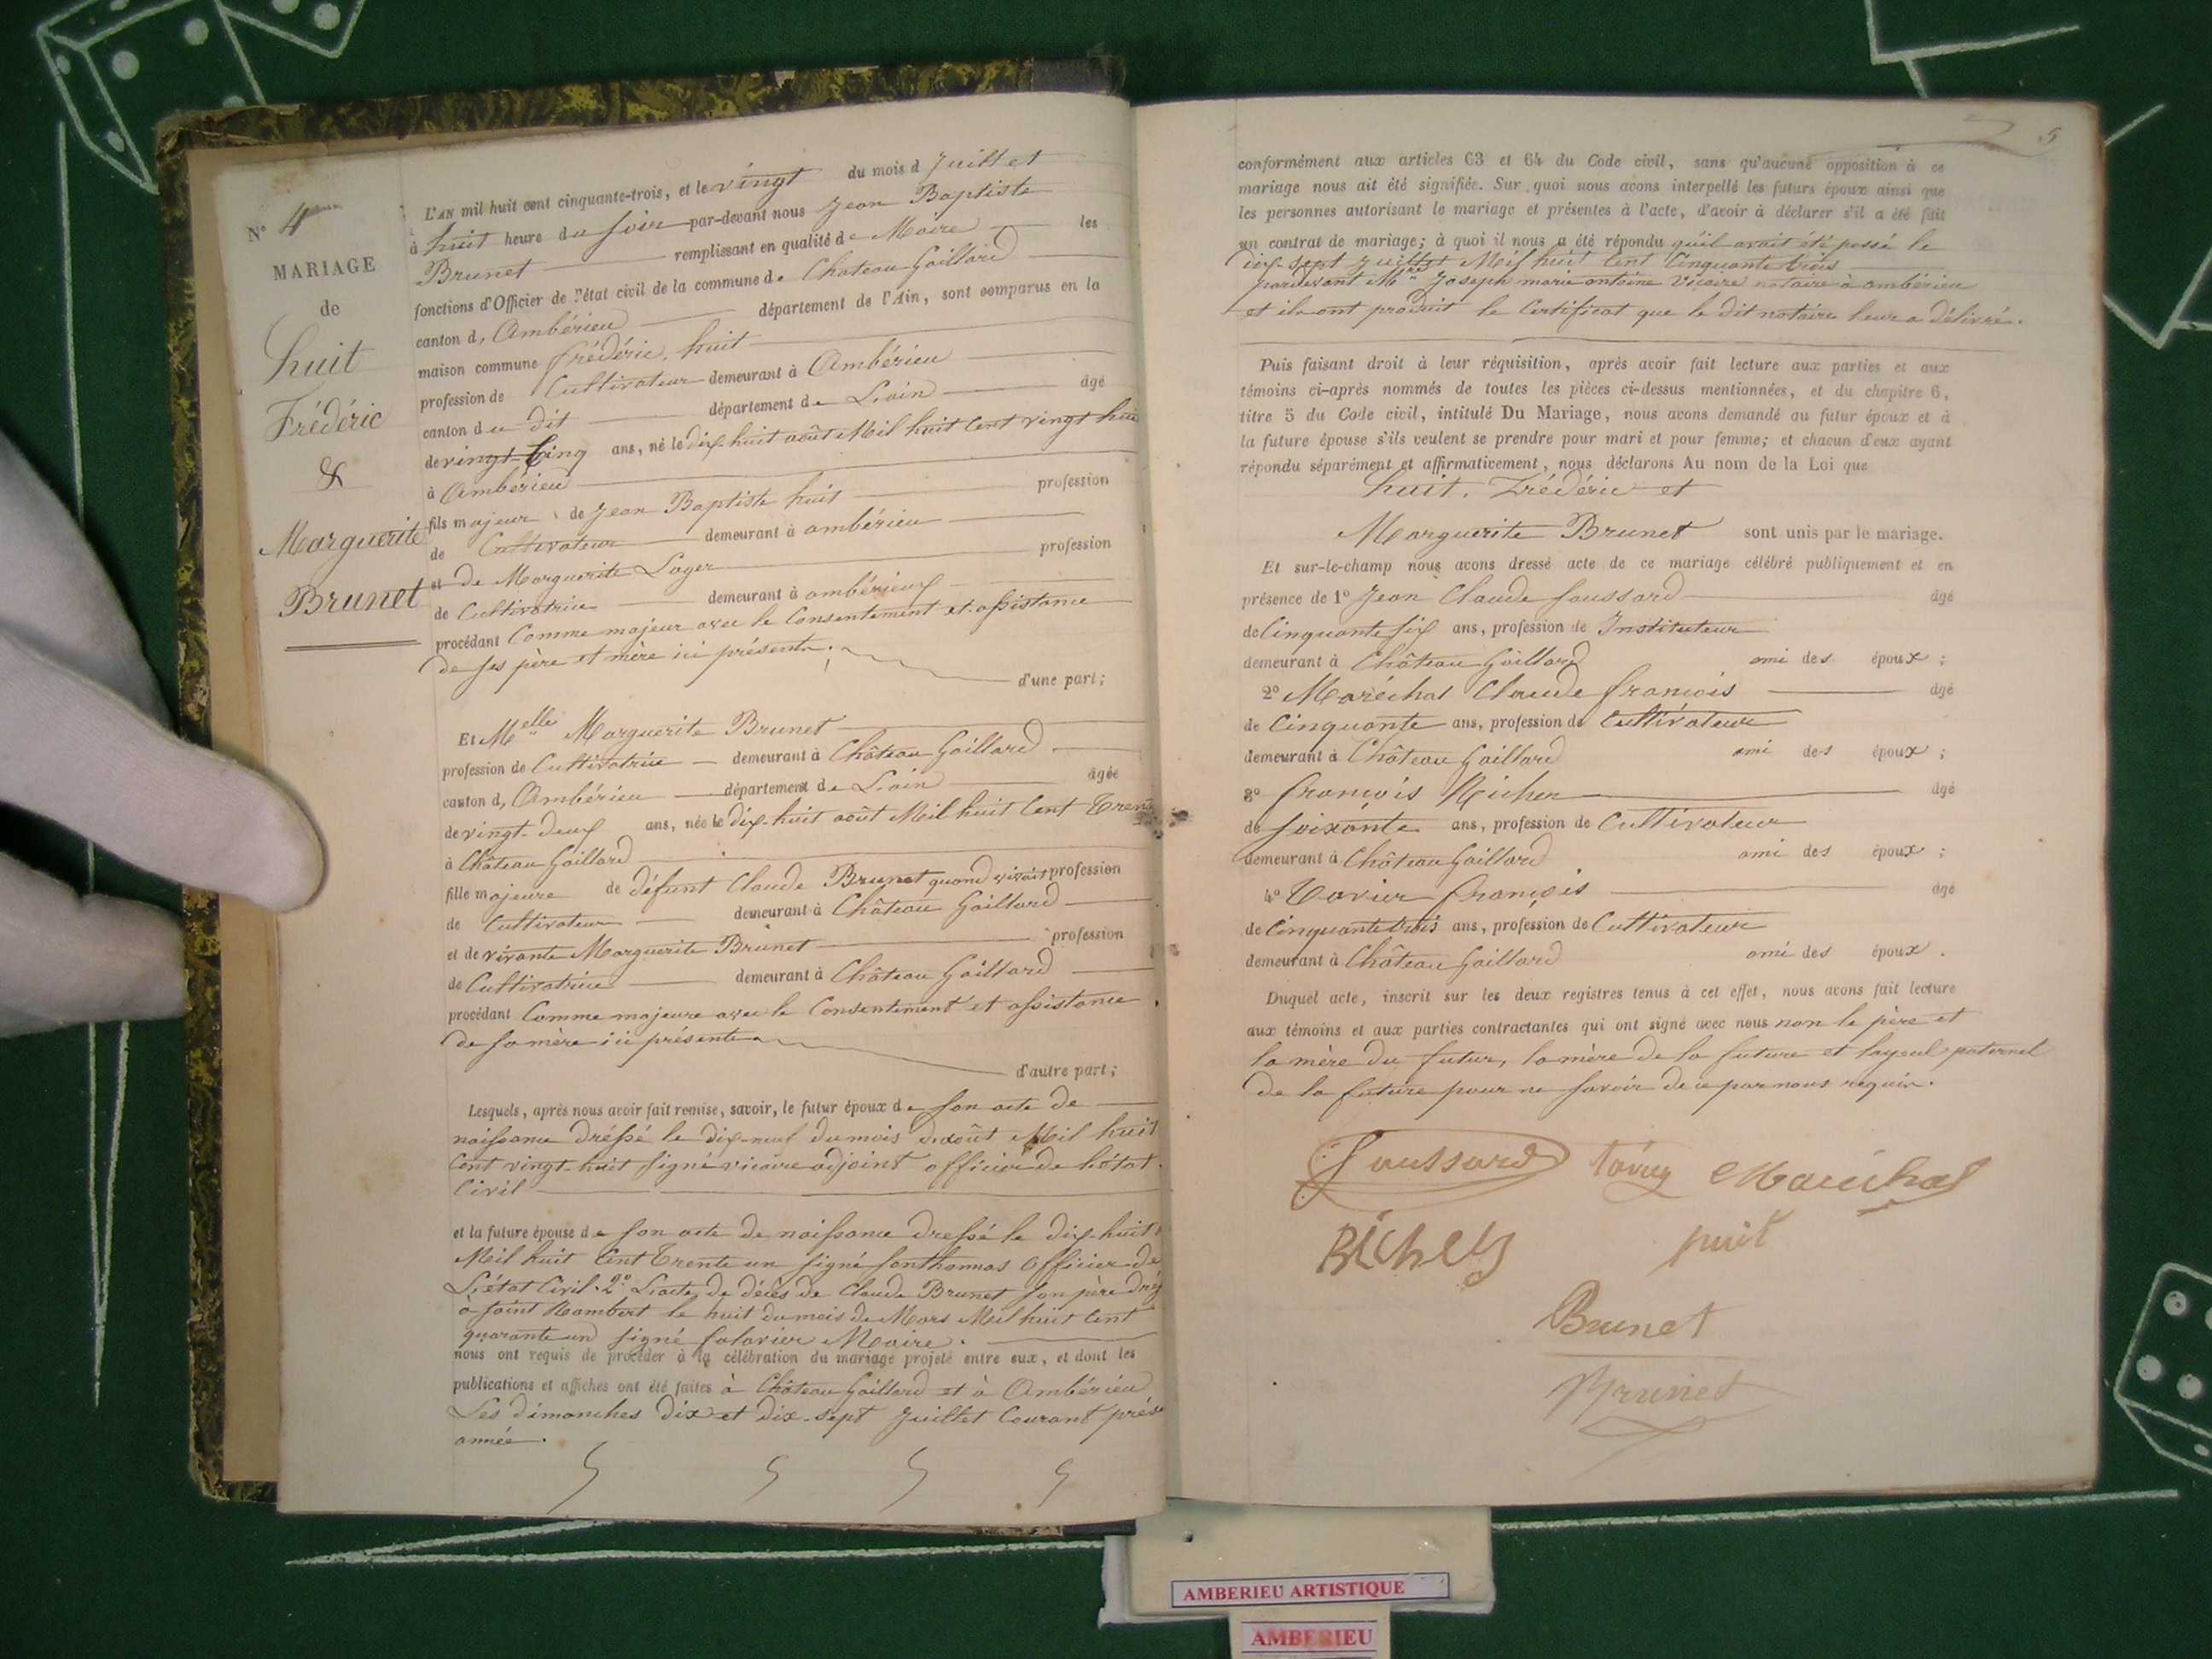 N° 4
MARIAGE
de
huit
Frédéric
&
Marguerite
Brunet
L'AN mil huit cent cinquante-trois, et le vingt du mois d Juillet
à huit heure du soir par-devant nous Jean Baptiste
Brunet remplissant en qualité de Maire les
fonctions d'Officier de l'état civil de la commune de Chateau Gaillard
canton d, Ambérieu département de l'Ain, sont comparus en la
maison commune frédéric huit
profession de Cultivateur demeurant à Ambérieu
canton du dit département de L'ain âgé
de vingt-Cinq ans, né le dix huit août Mil huit Cent vingt huit
à Ambérieu
fils majeur de Jean Baptiste huit profession
de Cultivateur demeurant à ambérieu
et de Marguerite Loger profession
de Cultivatrice demeurant à ambérieux
procédant Comme majeur avec le Consentement et assistance
de ses père et mère ici présents. d'une part;
Et Melle Marguerite Brunet
profession de Cultivatrice demeurant à Château Gaillard
canton d, Ambérieu département de L'ain âgée
de vingt-deux ans, née le dix-huit août Mil huit Cent Trente
à Château Gaillard
fille majeure de défunt Claude Brunet quand vivait profession
de Cultivateur demeurant à Château Gaillard
et de vivante Marguerite Brunet profession
de Cultivatrice demeurant à Château Gaillard
procédant Comme majeure avec le Consentement et assistance
de sa mère ici présente d'autre part;
Lesquels, après nous avoir fait remise, savoir, le futur époux de son acte de
naissance dréssé le dix-neuf du mois d'août Mil huit
Cent vingt-huit signé vicaire adjoint officier de l'état
Civil
et la future épouse de son acte de naissance dressé le dix huit
Mil huit Cent Trente un signé fonthannas officier de
L'état Civil. 2° L'acte de décès de Claude Brunet son père
à Saint Rambert le huit du mois de Mars Mil huit Cent
quarante un signé falavier Maire.
nous ont requis de procéder à la célébration du mariage projeté entre eux, et dont les
publications et affiches ont été faites à Château Gaillard et à Ambérieu
Les dimanches dix et dix-sept Juillet Courant
année.
5
conformément aux articles 63 et 64 du Code civil, sans qu'aucune opposition à ce
mariage nous ait été signifiée. Sur quoi nous avons interpellé les futurs époux ainsi que
les personnes autorisant le mariage et présentes à l'acte, d'avoir à déclarer s'il a été fait
un contrat de mariage; à quoi il nous a été répondu qu'il avait été passé le
dix-sept Juillet Mil huit Cent Cinquante trois
pardevant Mtre Joseph marie antoine Vicaire notaire à ambérieu
et ils ont produit le Certificat que le dit notaire leur a délivré.
Puis faisant droit à leur réquisition, après avoir fait lecture aux parties et aux
témoins ci-après nommés de toutes les pièces ci-dessus mentionnées, et du chapitre 6,
titre 5 du Code civil, intitulé Du Mariage, nous avons demandé au futur époux et à
la future épouse s'ils veulent se prendre pour mari et pour femme; et chacun d'eux ayant
répondu séparément et affirmativement, nous déclarons Au nom de la Loi que
huit. Frédéric et
Marguerite Brunet sont unis par le mariage.
Et sur-le-champ nous avons dressé acte de ce mariage célébré publiquement et en
présence de 1° Jean Claude Joussard âgé
de Cinquante six ans, profession de Instituteur
demeurant à Château Gaillard ami des époux;
2° Maréchal Claude françois âgé
de Cinquante ans, profession de Cultivateur
demeurant à Château Gaillard ami des époux;
3° françois Richer âgé
de soixante ans, profession de Cultivateur
demeurant à Château Gaillard ami des époux;
4° Tavier françois âgé
de Cinquante trois ans, profession de Cultivateur
demeurant à Château Gaillard ami des époux.
Duquel acte, inscrit sur les deux registres tenus à cet effet, nous avons fait lecture
aux témoins et aux parties contractantes qui ont signé avec nous non le père et
la mère du futur, la mère de la future et layeul paternel
de la future pour ne savoir de ce par nous requis.
Joussard Maréchal
huit
Brunet
Brunet
AMBERIEU ARTISTIQUE
AMBERIEU